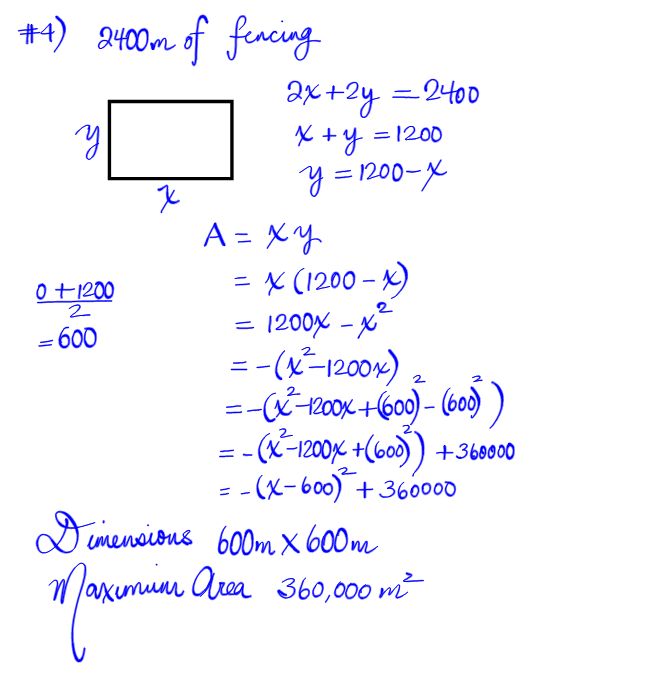 #4) 2400m of fencing
2x+2y = 2400
x + y = 1200
y = 1200-x
y
x
A = xy
= x(1200 - x)
= 1200x - x²
= -(x²-1200x)
= -(x²-1200x+(600)²-(600)²)
= -(x²-1200x+(600)²) +360000
= -(x-600)² + 360000
0 + 1200
2
= 600
Dimensions 600m X 600m
Maximum Area 360,000 m²